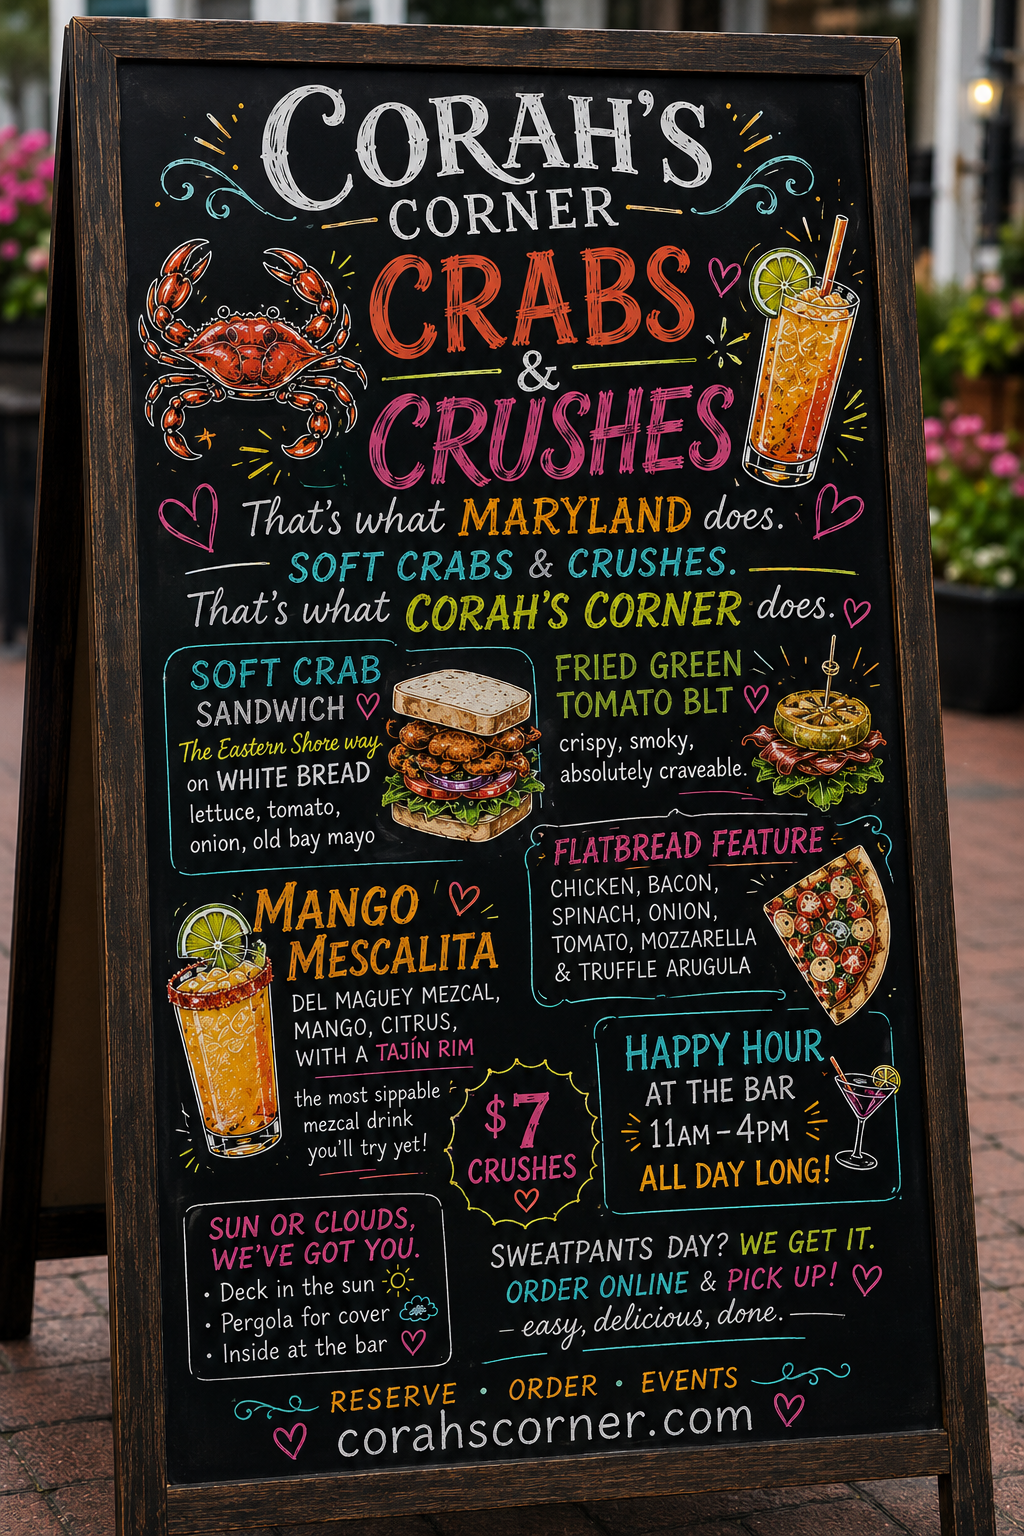 CORAH'S
CORNER
CRABS
&
CRUSHES
That's what MARYLAND does.
SOFT CRABS & CRUSHES.
That's what CORAH'S CORNER does.
SOFT CRAB
SANDWICH
The Eastern Shore way
on WHITE BREAD
lettuce, tomato,
onion, old bay mayo
FRIED GREEN
TOMATO BLT
crispy, smoky,
absolutely craveable.
FLATBREAD FEATURE
CHICKEN, BACON,
SPINACH, ONION,
TOMATO, MOZZARELLA
& TRUFFLE ARUGULA
MANGO
MESCALITA
DEL MAGUEY MEZCAL,
MANGO, CITRUS,
WITH A TAJÍN RIM
the most sippable
mezcal drink
you'll try yet!
$7
CRUSHES
HAPPY HOUR
AT THE BAR
11AM – 4PM
ALL DAY LONG!
SUN OR CLOUDS,
WE'VE GOT YOU.
• Deck in the sun
• Pergola for cover
• Inside at the bar
SWEATPANTS DAY? WE GET IT.
ORDER ONLINE & PICK UP!
– easy, delicious, done. –
RESERVE • ORDER • EVENTS
corahscorner.com